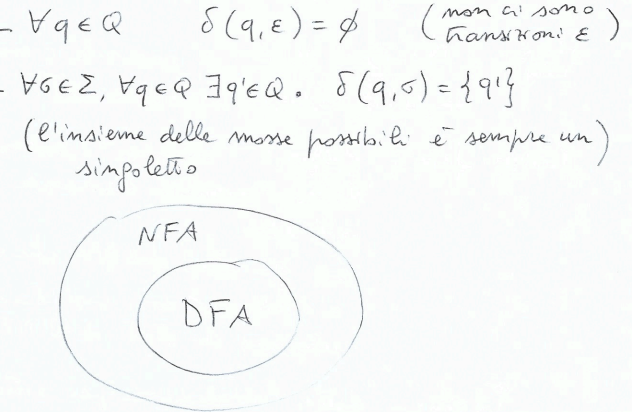 - ∀q∈Q δ(q,ε) = ∅ (non ci sono
transizioni ε)
- ∀σ∈Σ, ∀q∈Q ∃q'∈Q. δ(q,σ) = {q'}
(l'insieme delle mosse possibili è sempre un)
singoletto
NFA
DFA